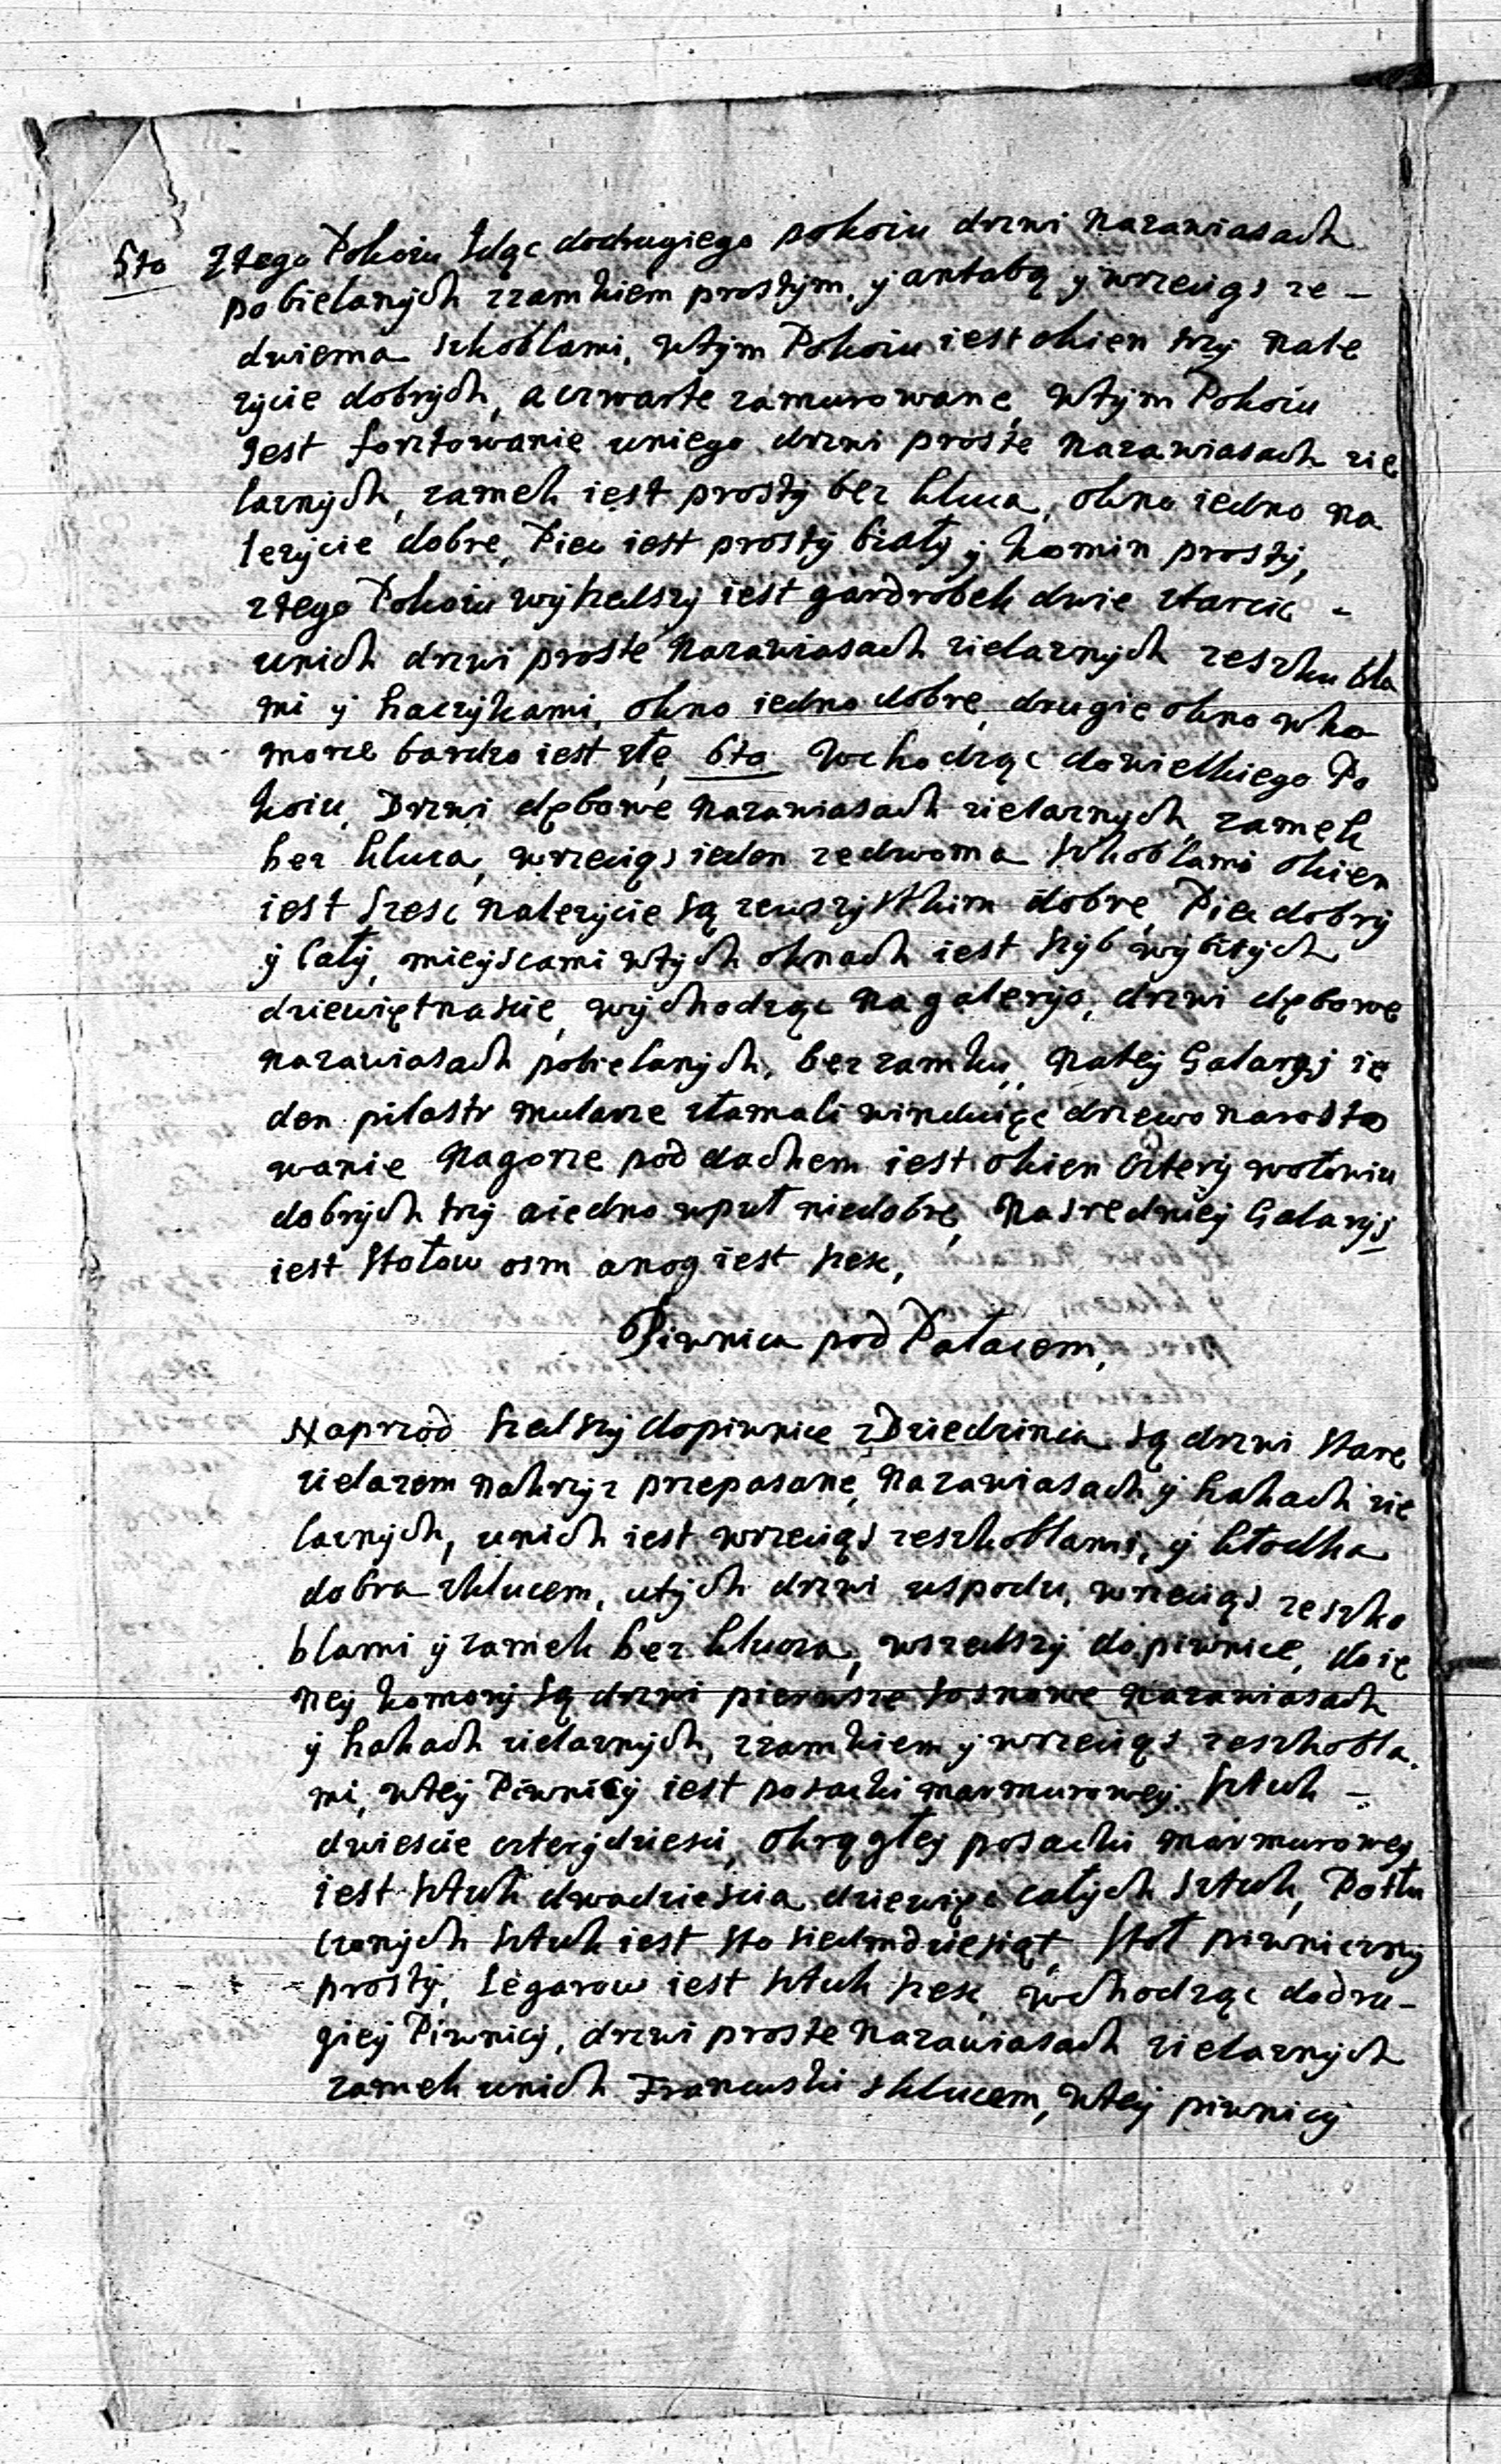 5to Ztego Pokoiu Idąc dodrugiego pokoiu drzwi Nazawiasach
pobielanych zzamkiem prostym, y antabą y wrzeciąs ze –
dwiema szkoblami, wtym Pokoiu iest okien trzy nale
zycie dobrych, aczwarte zamurowane, wtym Pokoiu
Jest fosztowanie uniego drzwi proste Nazawiasach zie
laznych, zamek iest prosty bez klucza, okno iedno na
lezycie dobre, Piec iest prosty biały y komin prosty,
ztego Pokoiu wyszedszy iest gardrobek dwie ztarcic –
unich drzwi proste Nazawiasach zielaznych zeszkubla
mi y haczykami, okno iedno dobre, drugie okno wko
morze bardzo iest złe, 6to Wchodząc dowielkiego Po
koiu, Drzwi dębowe Nazawiasach zielaznych, zamek
bez klucza, wrzeciąs ieden zedwoma szkoblami okien
iest szesc nalezycie są zewszystkim dobre, Piec dobry
y Cały, mieyscami wtych oknach iest szyb wybitych
dziewiętnascie, wychodząc Nagaleryo, drzwi dębowe
nazawiasach pobielanych, bez zamku, Natey Galaryj ie
den pilastr mularze złamali winduięc drzewo narosto
wanie Nagorze pod dachem iest okien cztery wołowiu
dobrych trzy aiedno wpuł niedobre, Nasredniey Galaryj
iest Stołow osm anog iest szesc,
Piwnica pod Pałacem,
Naprzod szedszy dopiwnice zDziedzinca są drzwi Stare
zielazem Nakrzyz przepasane, Nazawiasach y hakach zie
laznych, unich iest wrzeciąs zeszkoblami, y kłodka
dobra zklucem, utych drzwi uspodu, wrzeciąs zeszko
blami y zamek bez klucza, wszedszy dopiwnice, doie
ney komory są drzwi pierwsze sosnowe Nazawiasach
y hakach zielaznych, zzamkiem y wrzeciąs zeszkobla
mi, wtey Piwnicy iest posacki marmurowey sztuk –
dwiescie czterydziesci, okrągłey posacki marmurowey
iest sztuk dwadziescia dziewięc całych sztuk, Potłu
czonych sztuk iest sto siedmdziesiąt, Stoł piwniczny
prosty, Legarow iest sztuk szesc, wchodząc dodru–
giey Piwnicy, drzwi proste Nazawiasach zielaznych
zamek unich Francuski sklucem, wtey piwnicy